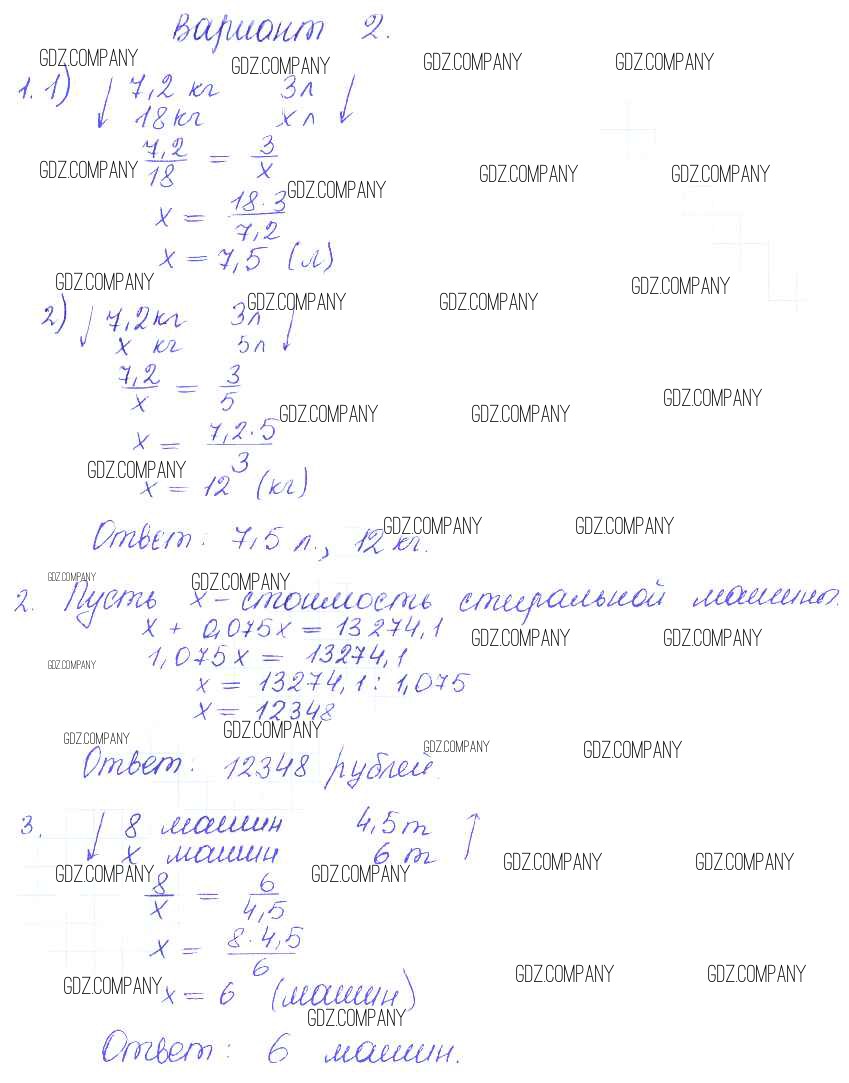 Вариант 2.
GDZ.COMPANY GDZ.COMPANY GDZ.COMPANY GDZ.COMPANY
1. 1) ↓ 7,2 кг 3л ↓
18 кг х л
7,2/18 = 3/х
GDZ.COMPANY GDZ.COMPANY GDZ.COMPANY GDZ.COMPANY
х = 18·3/7,2
х = 7,5 (л)
GDZ.COMPANY GDZ.COMPANY GDZ.COMPANY GDZ.COMPANY
2) ↓ 7,2кг 3л ↓
х кг 5л
7,2/х = 3/5
GDZ.COMPANY GDZ.COMPANY GDZ.COMPANY
х = 7,2·5/3
GDZ.COMPANY
х = 12 (кг)
GDZ.COMPANY GDZ.COMPANY
Ответ: 7,5 л., 12 кг.
GDZ.COMPANY GDZ.COMPANY
2. Пусть х – стоимость стиральной машины.
х + 0,075х = 13274,1
GDZ.COMPANY GDZ.COMPANY
1,075х = 13274,1
GDZ.COMPANY
х = 13274,1 : 1,075
х = 12348
GDZ.COMPANY GDZ.COMPANY GDZ.COMPANY GDZ.COMPANY
Ответ: 12348 рублей.
3. ↓ 8 машин 4,5 т ↑
х машин 6 т
GDZ.COMPANY GDZ.COMPANY GDZ.COMPANY GDZ.COMPANY
8/х = 6/4,5
х = 8·4,5/6
GDZ.COMPANY GDZ.COMPANY GDZ.COMPANY
х = 6 (машин)
GDZ.COMPANY
Ответ: 6 машин.